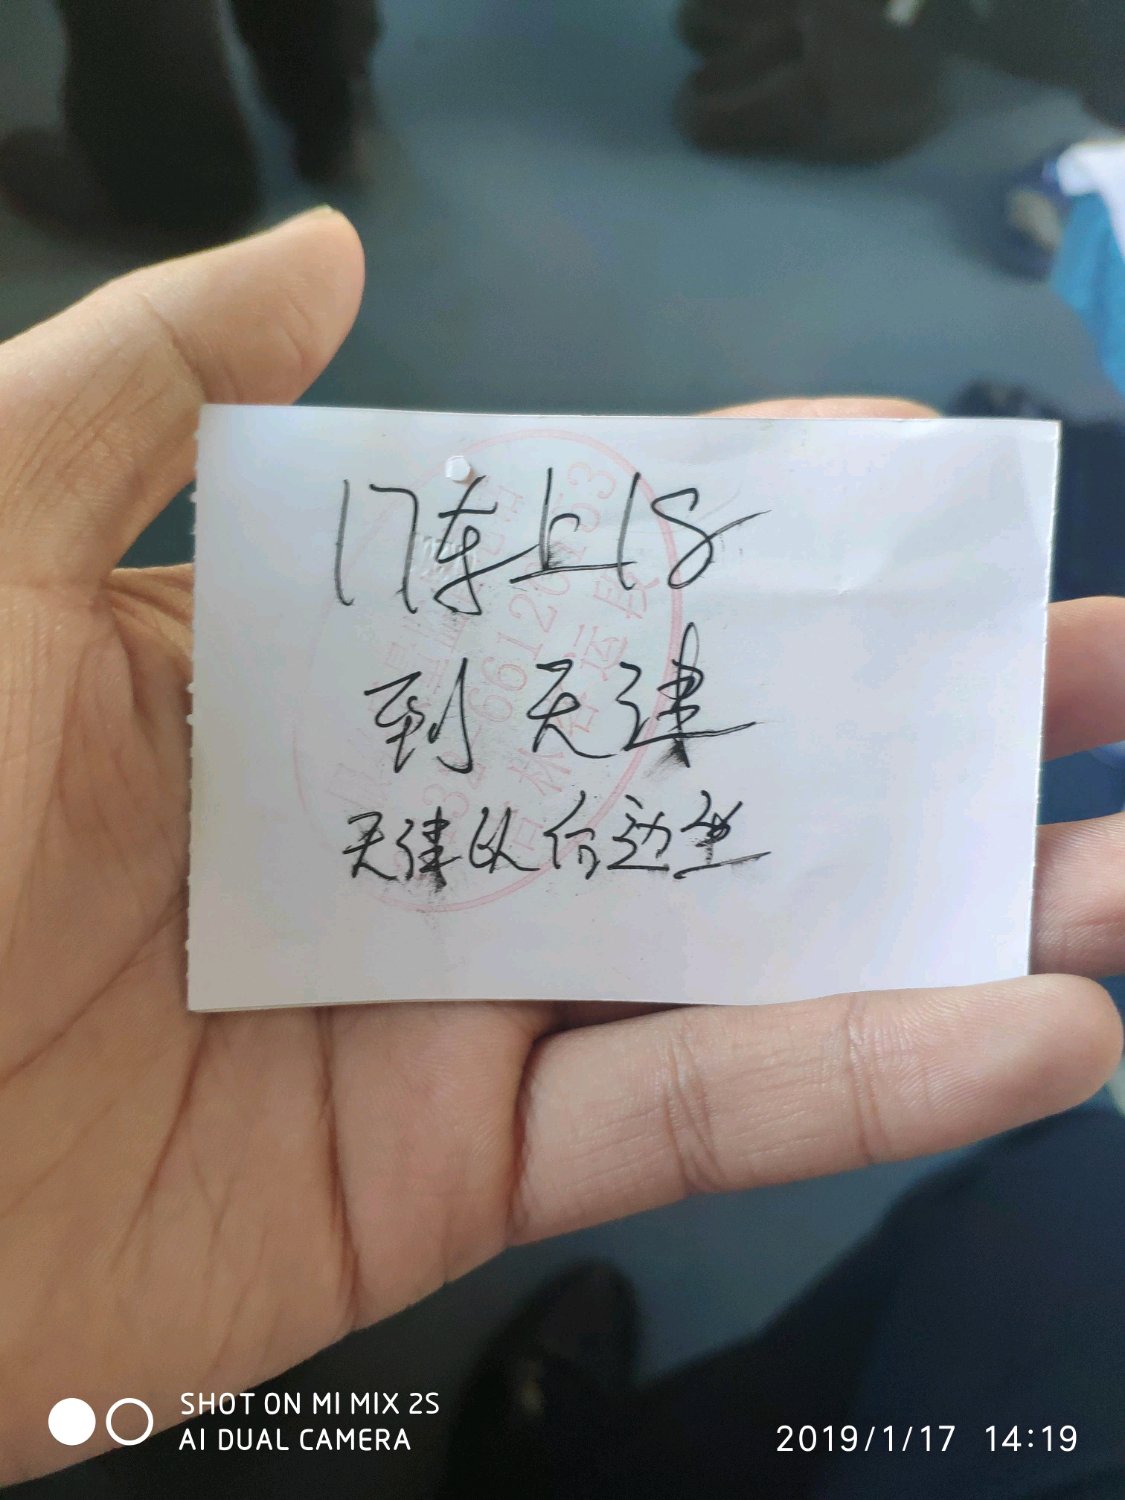 17车上18
到天津
天津以后边坐
SHOT ON MI MIX 2S
AI DUAL CAMERA
2019/1/17 14:19